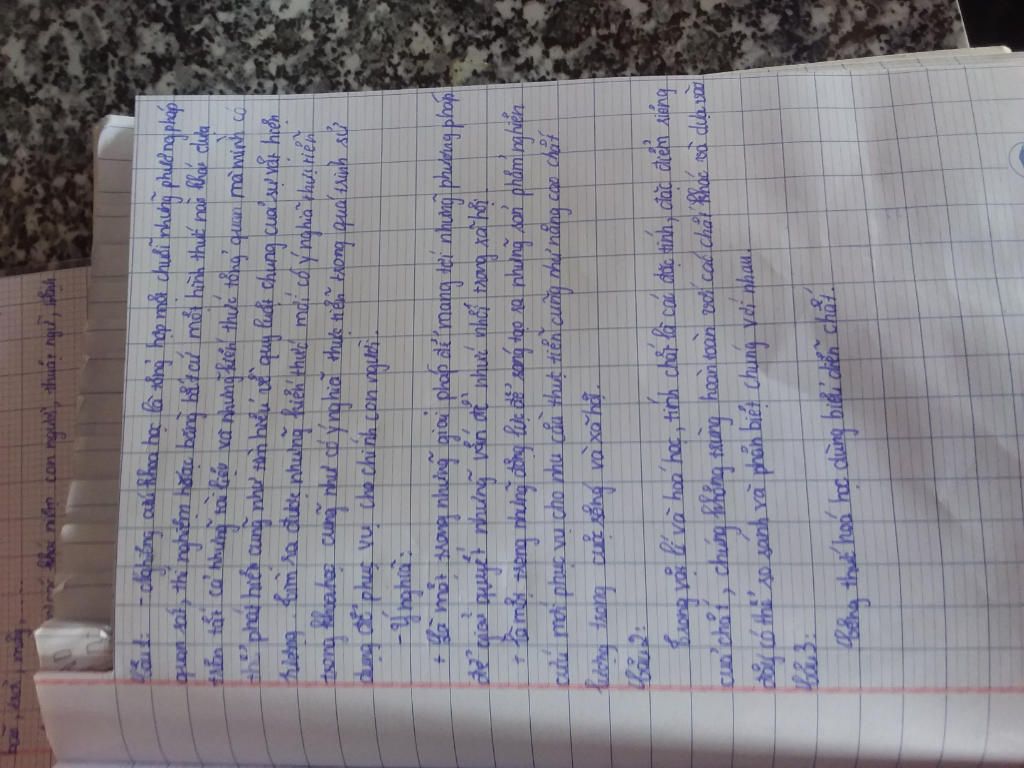 hoá, toá, mấy,......
khái niệm con người, thuật ngữ, phân
Câu 1: - Hoạt động cứu khoa học là tổng hợp một chuỗi những phương pháp
quan sát, thí nghiệm hoặc bằng bất cứ một hình thức nào khác dựa
trên tất cả những tài liệu và những kiến thức tổng quan mà mình có
thể phát hiện cũng như tìm hiểu về quy luật chung của sự vật hiện
tượng tìm ra được những kiến thức mới có ý nghĩa thực tiễn
trong khoa học cũng như có ý nghĩa thực tiễn trong quá trình sử
dụng để phục vụ cho chính con người.
- Ý nghĩa:
+ Là một trong những giải pháp để mang tới những phương pháp
để giải quyết những vấn đề nhức nhối trong xã hội
+ Là một trong những động lực để sáng tạo ra những sản phẩm nghiên
cứu mới phục vụ cho nhu cầu thực tiễn cũng như nâng cao chất
lượng trong cuộc sống và xã hội.
Câu 2:
Trong vật lí và hoá học, tính chất là các đặc tính, đặc điểm riêng
của chất, chúng không trùng hoàn toàn với các chất khác và dựa vào
đây có thể so sánh và phân biệt chúng với nhau.
Câu 3:
Công thức hoá học dùng biểu diễn chất.